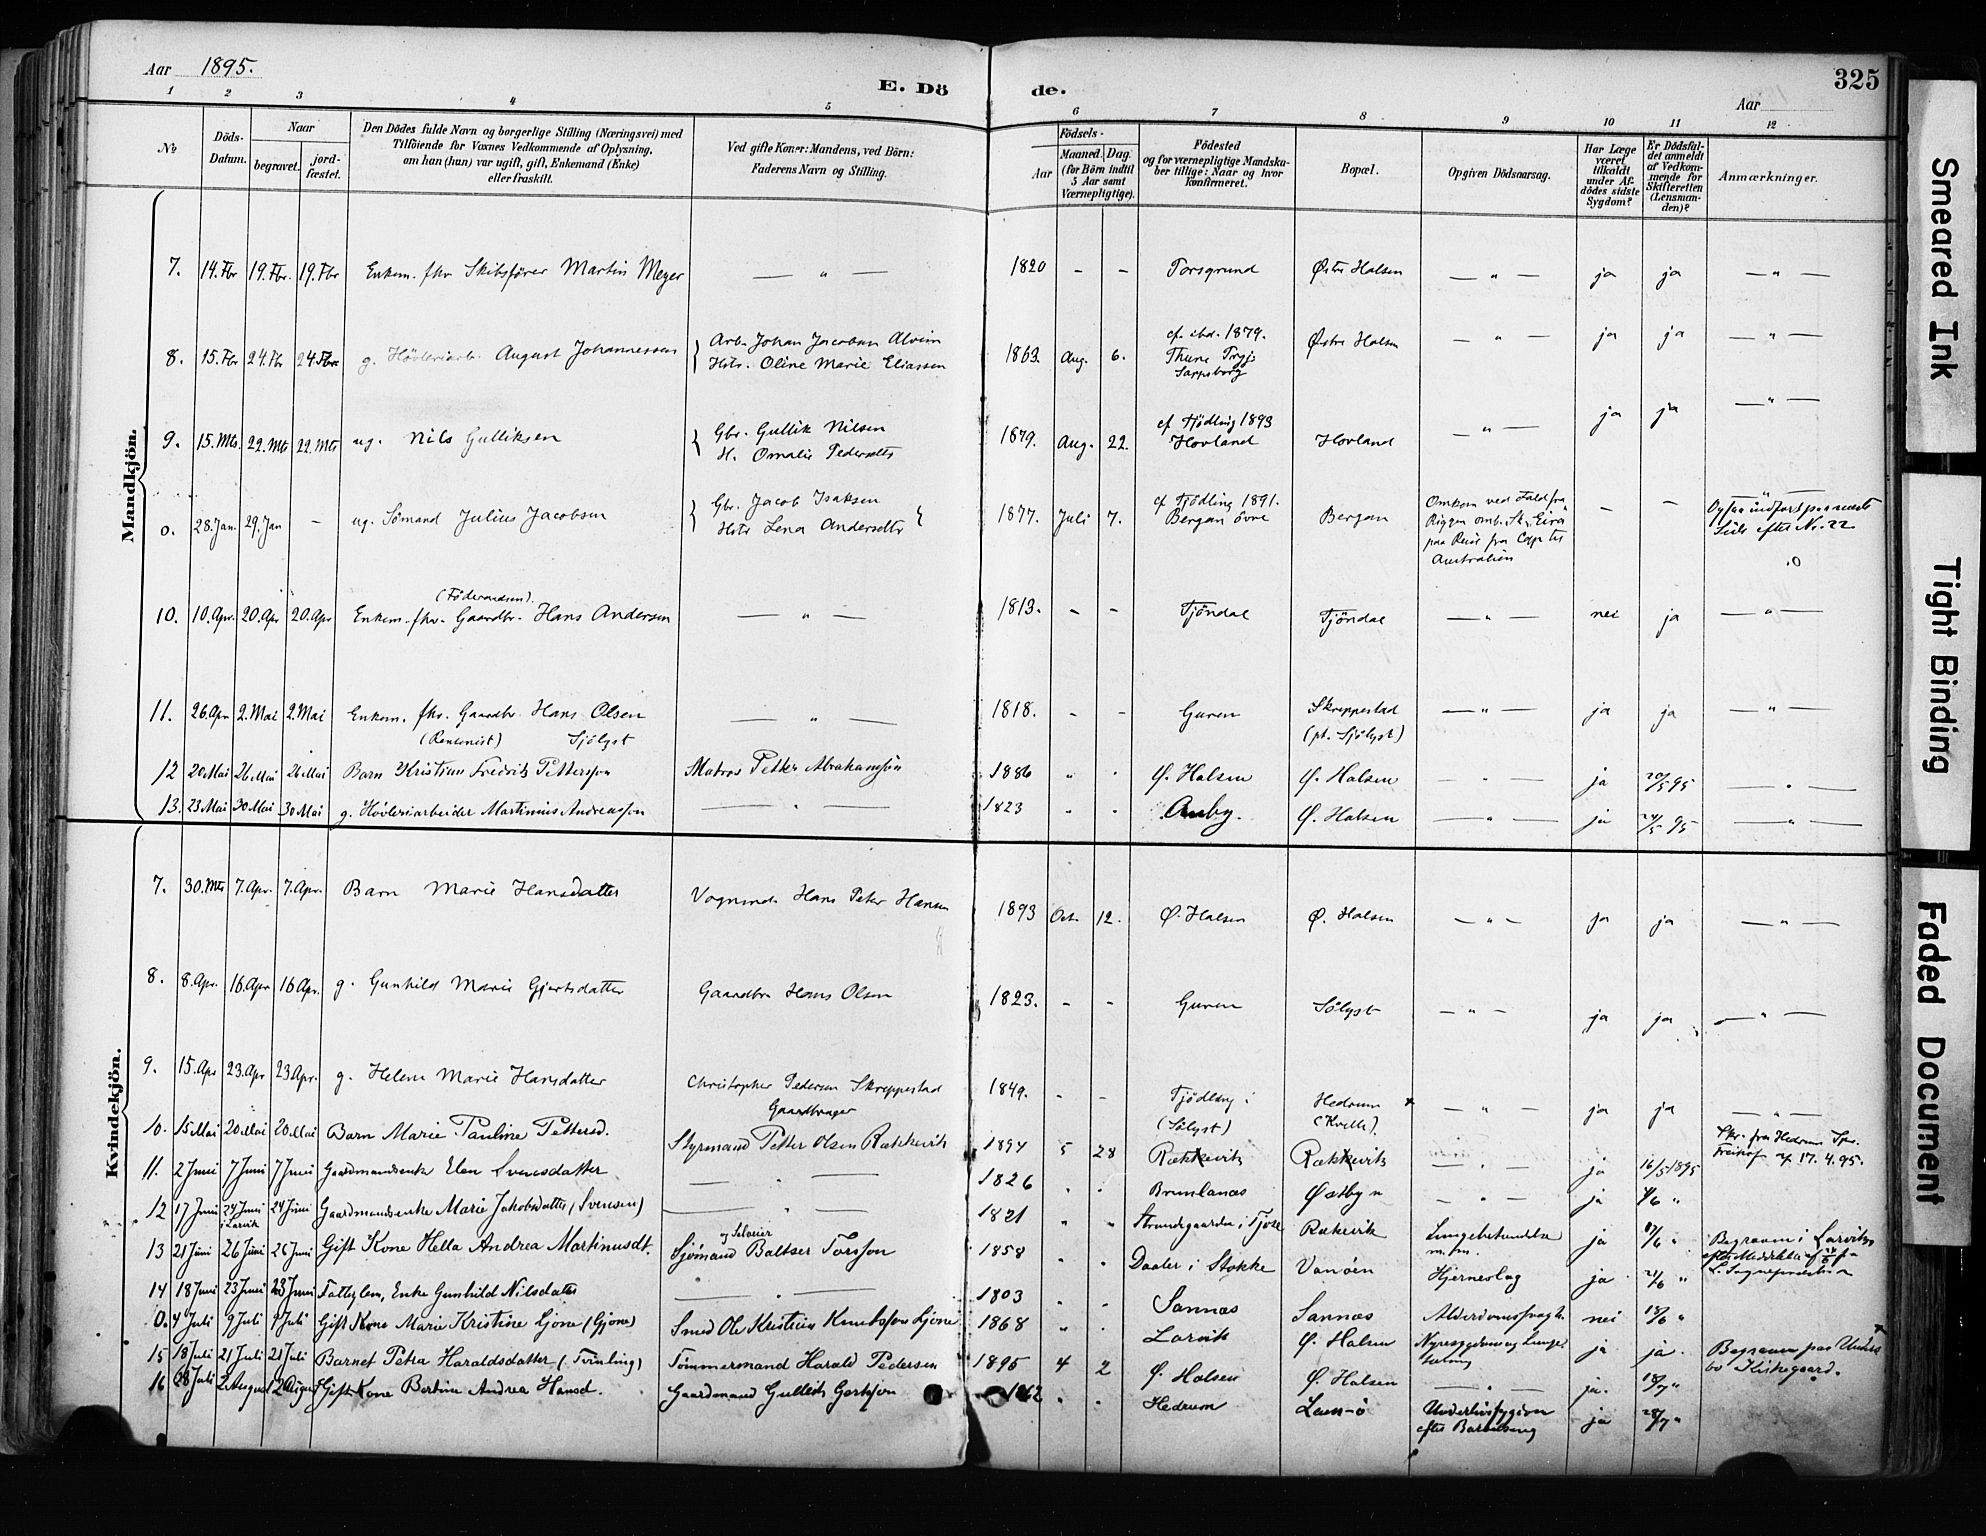 Aar 1895.
E. Dö de.
325
Aar
1 2 3 4 5 6 7 8 9 10 11 12
No
Döds-Datum.
Naar
begravet.
jord-fæstet.
Den Dödes fulde Navn og borgerlige Stilling (Næringsvei) med
Tilföiende for Voxnes Vedkommende af Oplysning,
om han (hun) var ugift, gift, Enkemand (Enke)
eller fraskilt.
Ved gifte Koner: Mandens, ved Börn:
Faderens Navn og Stilling.
Födsels-
Aar
Maaned. Dag.
(for Börn indtil
5 Aar samt
Værnepligtige).
Födested
og for værnepligtige Mandska-
ber tillige: Naar og hvor
Konfirmeret.
Bopæl.
Opgiven Dödsaarsag.
Har Læge
været
tilkaldt
under Af-
dödes sidste
Sygdom?
Er Dödsfal-
det anmeldt
af Vedkom-
mende for
Skifteretten
(Lensman-
den)?
Anmærkninger.
Mandkjön.
7. 14. Fbr 19. Fbr. 19. Fbr Enkem. fhv Skibsfører Martin Meyer — " — 1820 - - Porsgrund Østre Halsen — " — ja ja — " —
8. 15. Fbr 24. Fbr 24. Fbr g. Høvleriarb. August Johannessen Arb. Johan Jacobsen Alvim
Hstr. Oline Marie Eliassen 1863. Aug. 6. cf. ibd. 1879.
Thune Prgj.
Sarpsborg Østre Halsen — " — ja ja — " —
9. 15. Mts. 22. Mts 22. Mts ug. Nils Gulliksen Gbr. Gullik Nilsen
H. Omalie Pedersdtr 1879. Aug. 22. cf Tjödling 1893
Hovland Hovland — " — ja ja — " —
0. 28. Jan. 29. Jan - ug. Sømand Julius Jacobsen Gbr. Jacob Isaksen
Hstr Lena Andersdtr 1877. Juli 7. cf Tjödling 1891.
Bergan övre Bergan Omkom ved Fald fra
Riggen omb. Sk. "Eira"
paa Reise fra Cap til
Australien - - Ogsaa indført paa næste
Side efter No. 22
.0
10. 10. Apr. 20. Apr 20. Apr (Föderaadsm).
Enkem. fhv. Gaardbr. Hans Andersen — " — 1813. - - Tjöndal Tjöndal — " — nei ja — " —
11. 26. Apr 2. Mai 2. Mai Enkem. fhv. Gaardbr. Hans Olsen
(Rentenist) Sjölyst — " — 1818. - - Guren Skreppestad
(pt. Sjölyst) — " — ja ja — " —
12 20 Mai 26 Mai 26 Mai Barn Kristian Fredrik Petterssøn Matros Petter Abrahamsøn 1886 " . Ø. Halsen Ø. Halsen — " — ja 20/5 95 — " —
13. 23 Mai 30 Mai 30 Mai g. Høvleriarbeider Martinius Andreassøn — " — 1823 . . Auby. Ø. Halsen — " — ja 24/5 95 — " —
Kvindekjön.
7. 30. Mts 7. Apr. 7. Apr. Barn Marie Hansdatter Vognmd. Hans Peter Hansen 1893 Oct. 12. Ø. Halsen Ø. Halsen — " — ja ja — " —
8. 8. Apr. 16. Apr 16 Apr. g. Gunhild Marie Gjertsdatter Gaardbr Hans Olsen 1823. - - Guren Sölyst — " — ja ja — " —
9. 15. Apr 23. Apr 23 Apr. g. Helene Marie Hansdatter Christopher Pedersen Skreppestad
Gaardbruger 1849. - - Tjödling
(Sölyst) Hedrum
(Kvelle). — " — ja ja — " —
10. 15 Mai 20 Mai 20 Mai Barn Marie Pauline Pettersd. Styrmand Petter Olsen Rækkevik 1894 5 28 Rækkevik Rækkevik — . — ja 16/5 1895 Skr. fra Hedrum Spr.
af 17.4.95.
11. 2 Juni 7 Juni 7 Juni Gaardmandsenke Elen Svensdatter — " — 1826 . . Brunlanæs Østbyn — " — ja 4/6 "
12 17 Juni 24 Juni
i Larvik 24 Juni Gaardmandsenke Marie Jakobsdatter (Svensen) — " — 1821 " " Strandgaarden i Tjöse Rækevik Lungebetændelse
m.m. ja
13 21 Juni 26 Juni 26 Juni Gift Kone Hella Andrea Martinusdt. og Selveier
Sjømand Baltser Torssøn 1858 . . Daaler i Stokke Vanöen Hjerneslag ja 21/6 " Begraven i Larvik
14 18 Juni 23 Juni 23 Juni Fattiglem, Enke Gunhild Nilsdatter — " — 1803 . . Sannæs Sannæs Alderdomssvagh. nei 18/6 "
0. 4 Juli 9 Juli 9 Juli Gift Kone Marie Kristine Gjone (Gjøne) Smed Ole Kristian Knutssøn Gjone 1868 " . Larvik Ø. Halsen Nyresygdom og Lunge- ja ja. Begraven paa Under
bo Kirkegaard.
15 18 Juli 21 Juli 21 Juli Barnet Petra Haraldsdatter (Tvinling) Tömmermand Harald Pedersen 1895 4 2 Ø. Halsen Ø. Halsen — " — ja. 18/7 "
16 28 Juli 2 August 2 August Gift Kone Bertine Andrea Hansd. Gaardmand Gullich Gertssøn 1862 " . Hedrum Lam-ö Underlivssygdom
efter Barselseng ja 28/7 "
Smeared Ink
Tight Binding
Faded Document